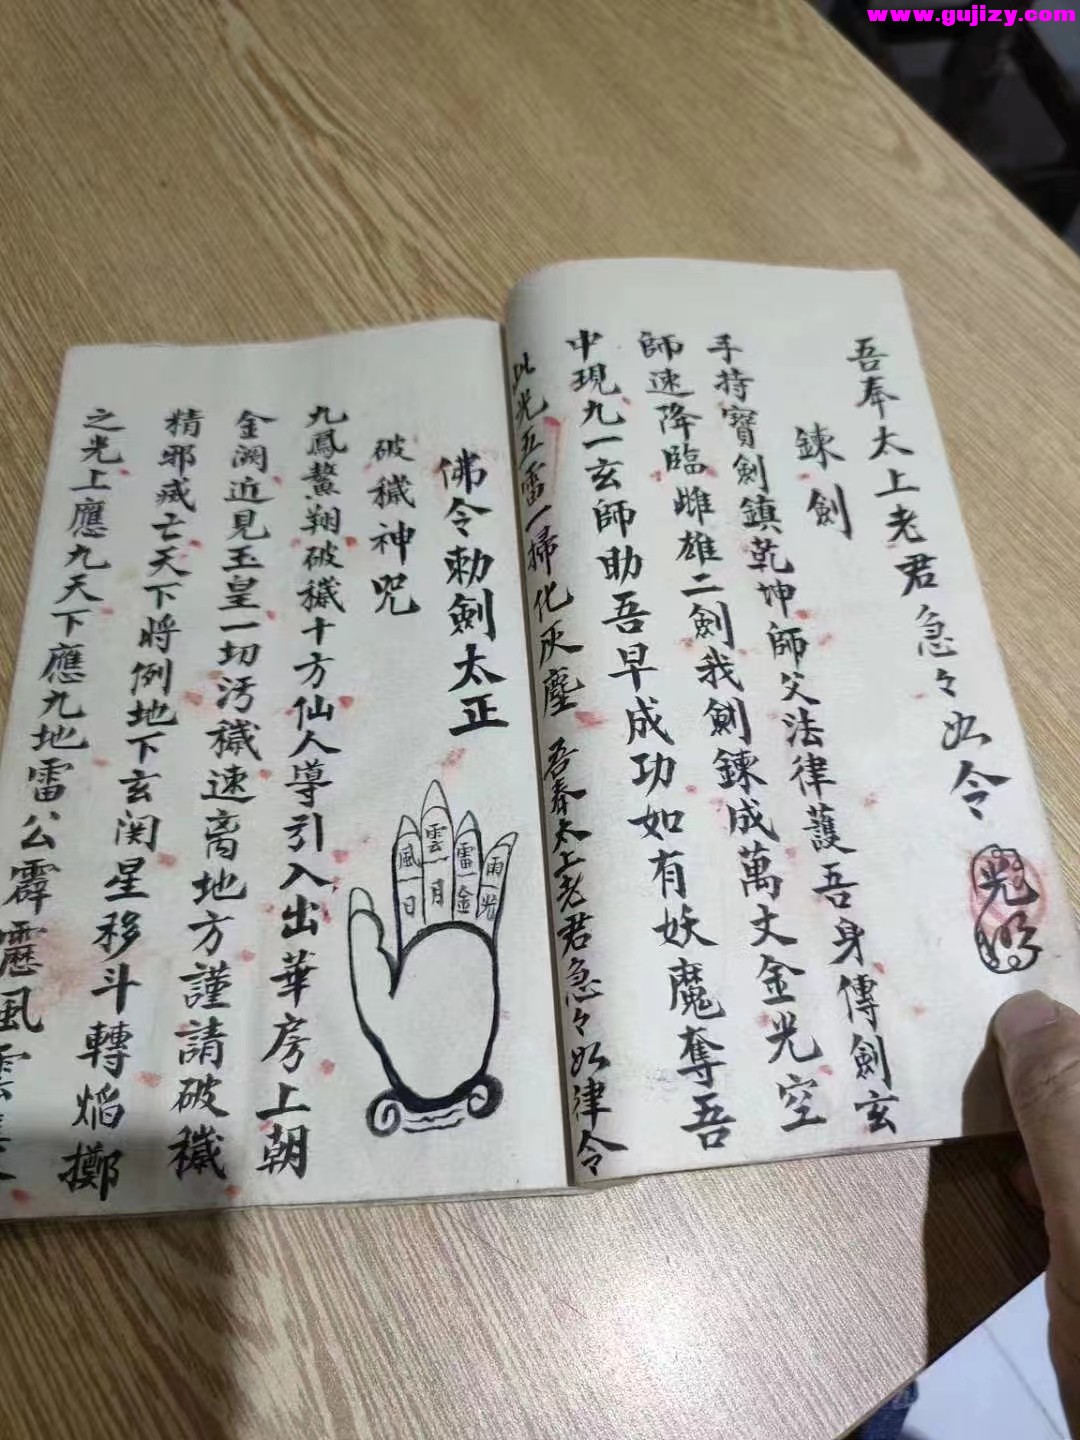 www.gujizy.com
吾奉太上老君急々如令
鍊劍
手持寶劍鎮乾坤師父法律護吾身傳劍玄
師速降臨雌雄二劍我劍鍊成萬丈金光空
中現九一玄師助吾早成功如有妖魔奪吾
此光五雷一掃化灰塵 吾奉太上老君急々如律令
佛令勅劍太正
破穢神咒
九鳳翱翔破穢十方仙人導引入出華房上朝
金闕近見玉皇一切汚穢速离地方謹請破穢
精邪滅亡天下將例地下玄関星移斗轉焰擲
之光上應九天下應九地雷公霹靂風雲
風 雲 雷 雨
日 月 金 光